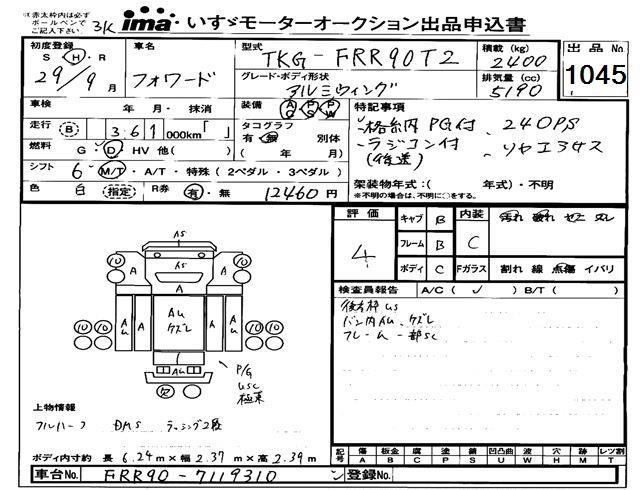 ※赤太枠内は必ず
ボールペンで
ご記入下さい
3K
ima いすゞモーターオークション出品申込書
初度登録
S H・R
29年9月
車名
フォワード
型式
TKG-FRR90T2
グレード・ボディ形状
アルミウィング
積載 (kg)
2400
排気量 (cc)
5190
出品No
1045
車検 年 月・抹消
装備 AC PS PW
走行 B 361 000km「 」
タコグラフ
有・無 別体
( 年 月)
燃料 G D HV 他( )
シフト 6 M/T・A/T・特殊(2ペダル・3ペダル)
色 白 指定 R券 有・無 12460円
特記事項
・格納PG付 ・240PS
・ラジコン付 ・リヤエアサス
(後送)
架装物年式:( 年式)・不明
※不明の場合は、不明に○をする。
評価
4
キャブ B
フレーム B
ボディ C
内装 C
汚れ 破れ ゼニ ヌレ
Fガラス 割れ 線 点傷 イバリ
検査員報告 A/C(✓) B/T( )
バン内AU、ケズレ
フレーム一部SC
10 10
AS
A
AU
ケズレ
P/G
USC
上物情報
フルハーフ DMS ラッシング2段
ボディ内寸約 長 6.24m×幅 2.37m×高 2.39m
記号 傷A 板金B 腐C 塗P 錆S 凹凸曲U 波W 穴H 跡M レツ割T
車台No. FRR90-7119310
登録No.